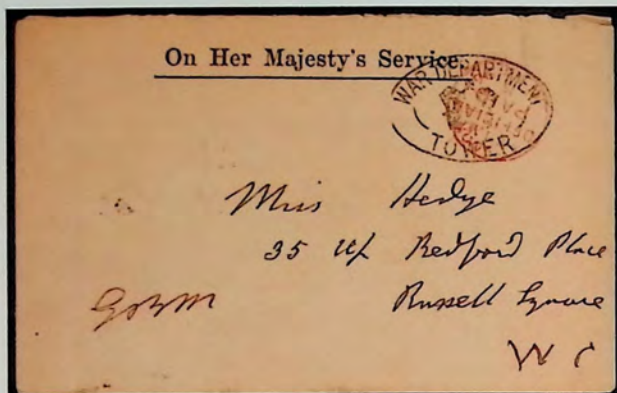 On Her Majesty's Service.
WAR DEPARTMENT
OFFICIAL
PAID
TOWER
Miss Hedge
35 Up Bedford Place
Russell Square
W C